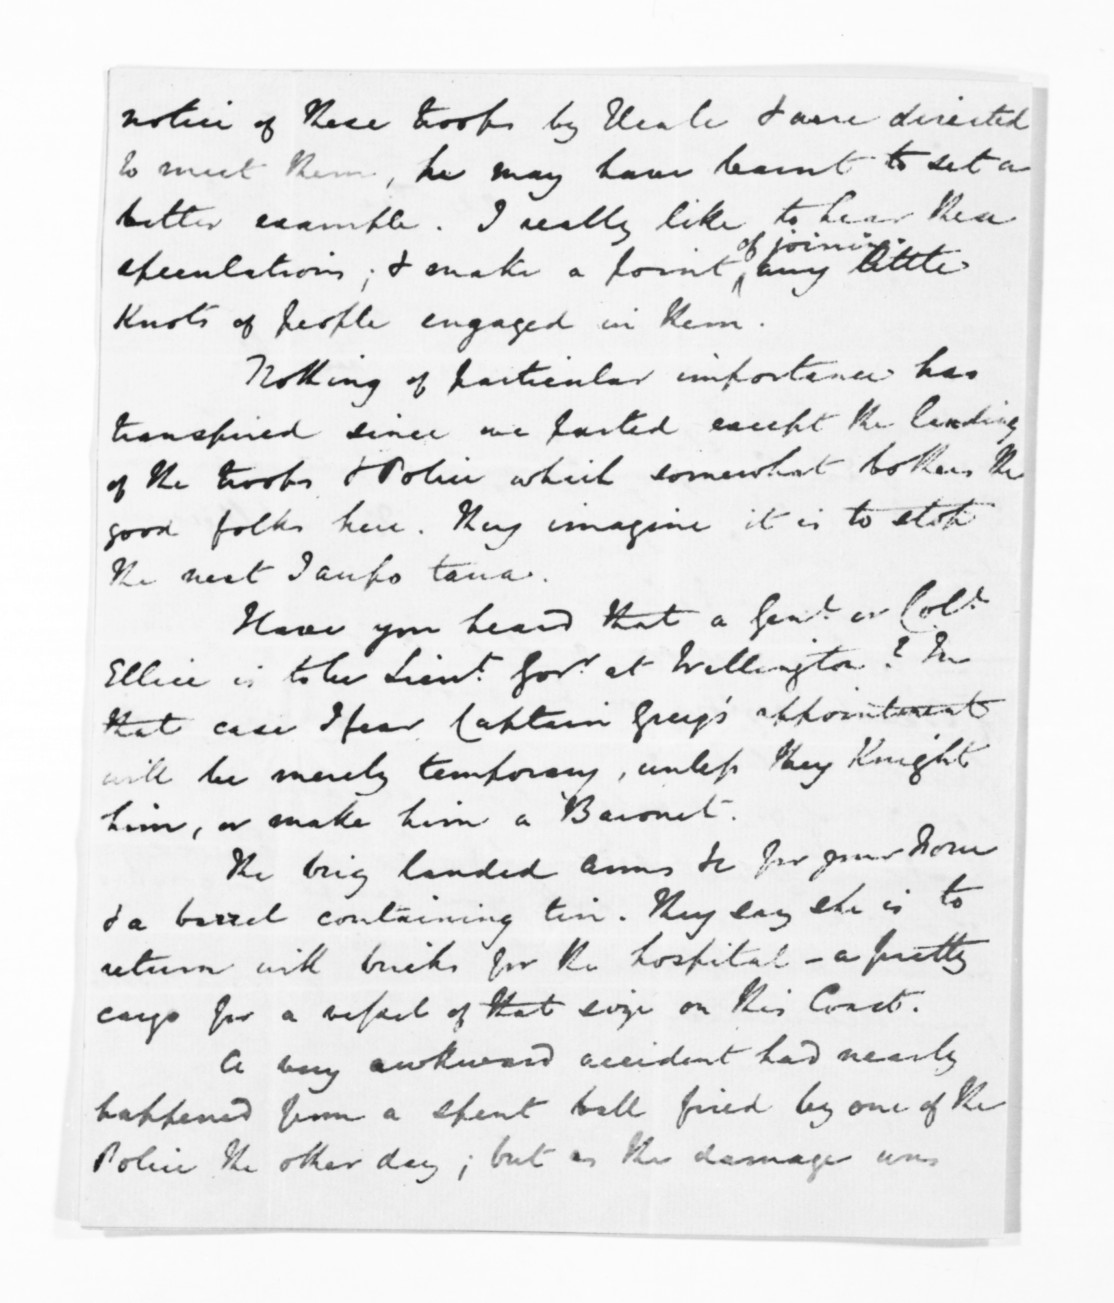 notice of these troops by Heale & were directed
to meet them, he may have learnt to set a
better example. I really like to hear these
speculations; & make a point of joining any little
Knots of people engaged in them.
Nothing of particular importance has
transpired since we parted except the landing
of the troops & Police which somewhat bothers the
good folks here. They imagine it is to stop
the next Taupo taua.
Have you heard that a Genl. or Coll.
Ellice is to be Lieut. Govr. at Wellington? In
that case I fear Captain Grey's appointment
will be merely temporary, unless they Knight
him, or make him a Baronet.
The brig landed Arms &c for your
& a barrel containing tin. They say she is to
return with bricks for the hospital - a pretty
cargo for a vessel of that size on this Coast.
A very awkward accident had nearly
happened from a spent ball fired by one of the
Police the other day; but as the damage was